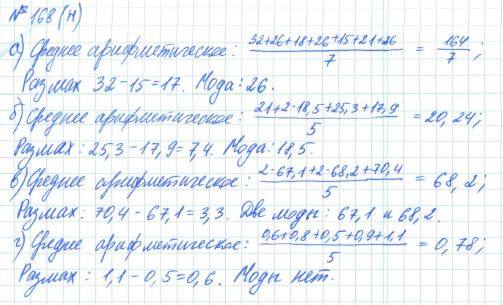 №168(н)
а) Среднее арифметическое: (32+26+18+26+15+21+26)/7 = 164/7;
Размах 32-15=17. Мода: 26.
б) Среднее арифметическое: (21+2·18,5+25,3+17,9)/5 = 20,24;
Размах: 25,3-17,9=7,4. Мода: 18,5.
в) Среднее арифметическое: (2·67,1+2·68,2+70,4)/5 = 68,2;
Размах: 70,4-67,1=3,3. Две моды: 67,1 и 68,2.
г) Среднее арифметическое: (0,6+0,8+0,5+0,9+1,1)/5 = 0,78;
Размах: 1,1-0,5=0,6. Моды нет.